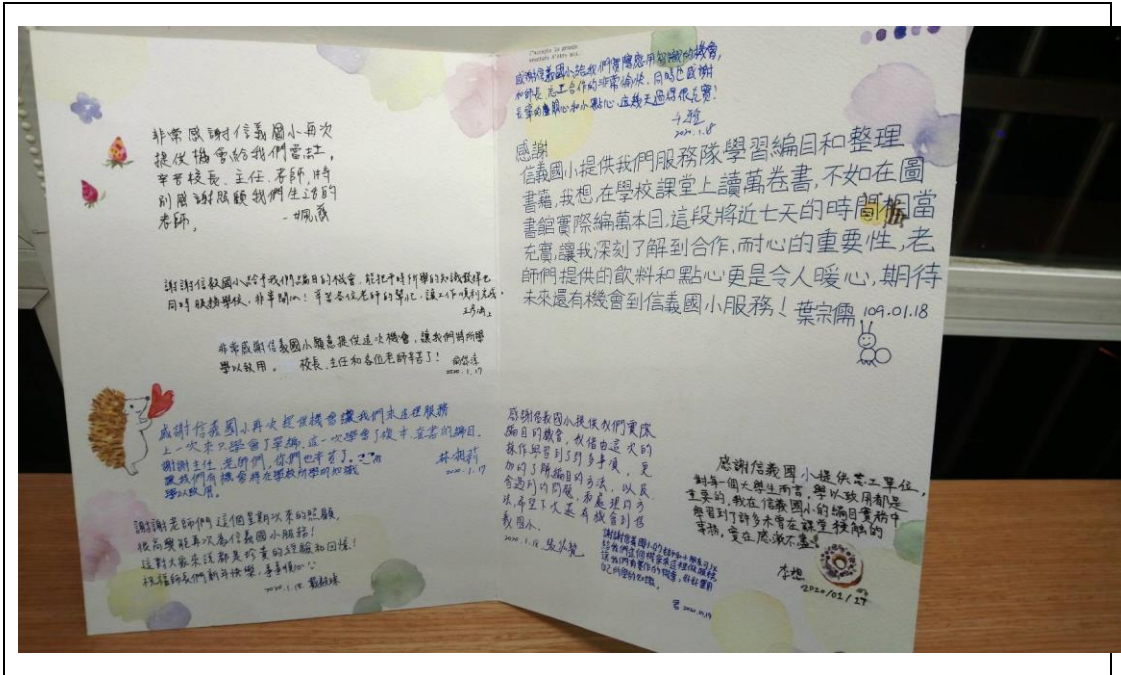 非常感謝信義國小再次
提供機會給我們當志工,
辛苦校長、主任、老師,特
別感謝照顧我們生活的
老師。
謝謝信義國小給予我們編目的機會,能把平時所學的知識
同時服務學校,非常開心!辛苦各位老師的
非常感謝信義國小願意提供這次機會,讓我們將所學
學以致用。 校長、主任和各位老師辛苦了!
2020.1.17
感謝信義國小再次提供機會讓我們來這裡服務
上一次來只學會了單編,這一次學會了複本、套書的編目。
謝謝主任、老師們,你們也辛苦了。
讓我們有機會將在學校所學的知識
學以致用。
2020.1.17
謝謝老師們這個星期以來的照顧,
很高興能再次為信義國小服務!
這對大家來說都是珍貴的經驗和回憶!
祝福師長們新年快樂,事事順心
2020.1.18
J'accepte la grande
感謝信義國小給我們實際應用知識的機會,
和師長、志工合作的非常愉快,同時也感謝
長輩的關心和小點心,這幾天過得很充實!
2020.1.8
感謝
信義國小提供我們服務隊學習編目和整理
書籍,我想,在學校課堂上讀萬卷書,不如在圖
書館實際編萬本目,這段將近七天的時間相當
充實,讓我深刻了解到合作,耐心的重要性,老
師們提供的飲料和點心更是令人暖心,期待
未來還有機會到信義國小服務!葉宗儒 109.01.18
感謝信義國小提供我們實際
編目的機會,我借由這次的
操作學習到了許多事項,更
加的了解編目的方法,以及
會遇到的問題,和處理的方
法,希望下次還有機會到信
義國小。
2020.1.18
謝謝信義國小的
給我們這個機會來這裡做服務
讓我們有實作的機會,好好運用
自己所學的知識。
君 2020.01.19
感謝信義國小提供志工單位,
對每一個大學生而言,學以致用都是
重要的,我在信義國小的編目實務中
學習到了許多未曾在課堂接觸的
事務,實在感激不盡!
2020/01/17